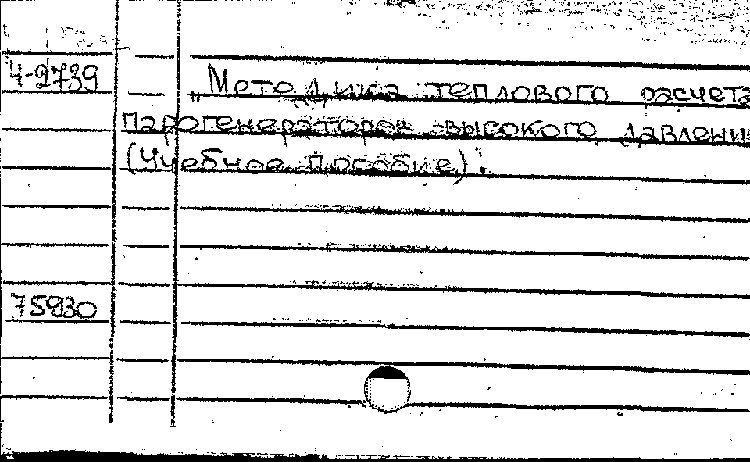 Ч-2739
„Методика теплового расчета
парогенераторов высокого давлени
(Учебное пособие).
75930